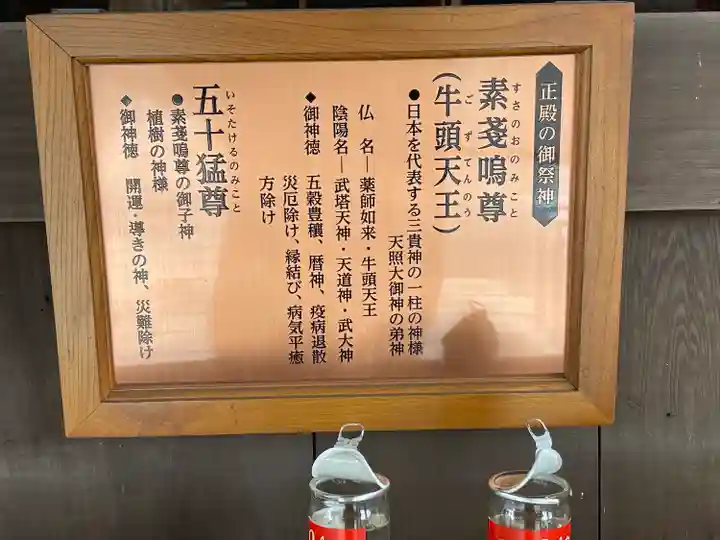 正殿の御祭神
すさのおのみこと
素戔嗚尊
(牛頭天王)
ごずてんのう
●日本を代表する三貴神の一柱の神様
天照大御神の弟神
仏 名―薬師如来・牛頭天王
陰陽名―武塔天神・天道神・武大神
◆御神徳 五穀豊穣、暦神、疫病退散
災厄除け、縁結び、病気平癒
方除け
いそたけるのみこと
五十猛尊
●素戔嗚尊の御子神
植樹の神様
◆御神徳 開運・導きの神、災難除け